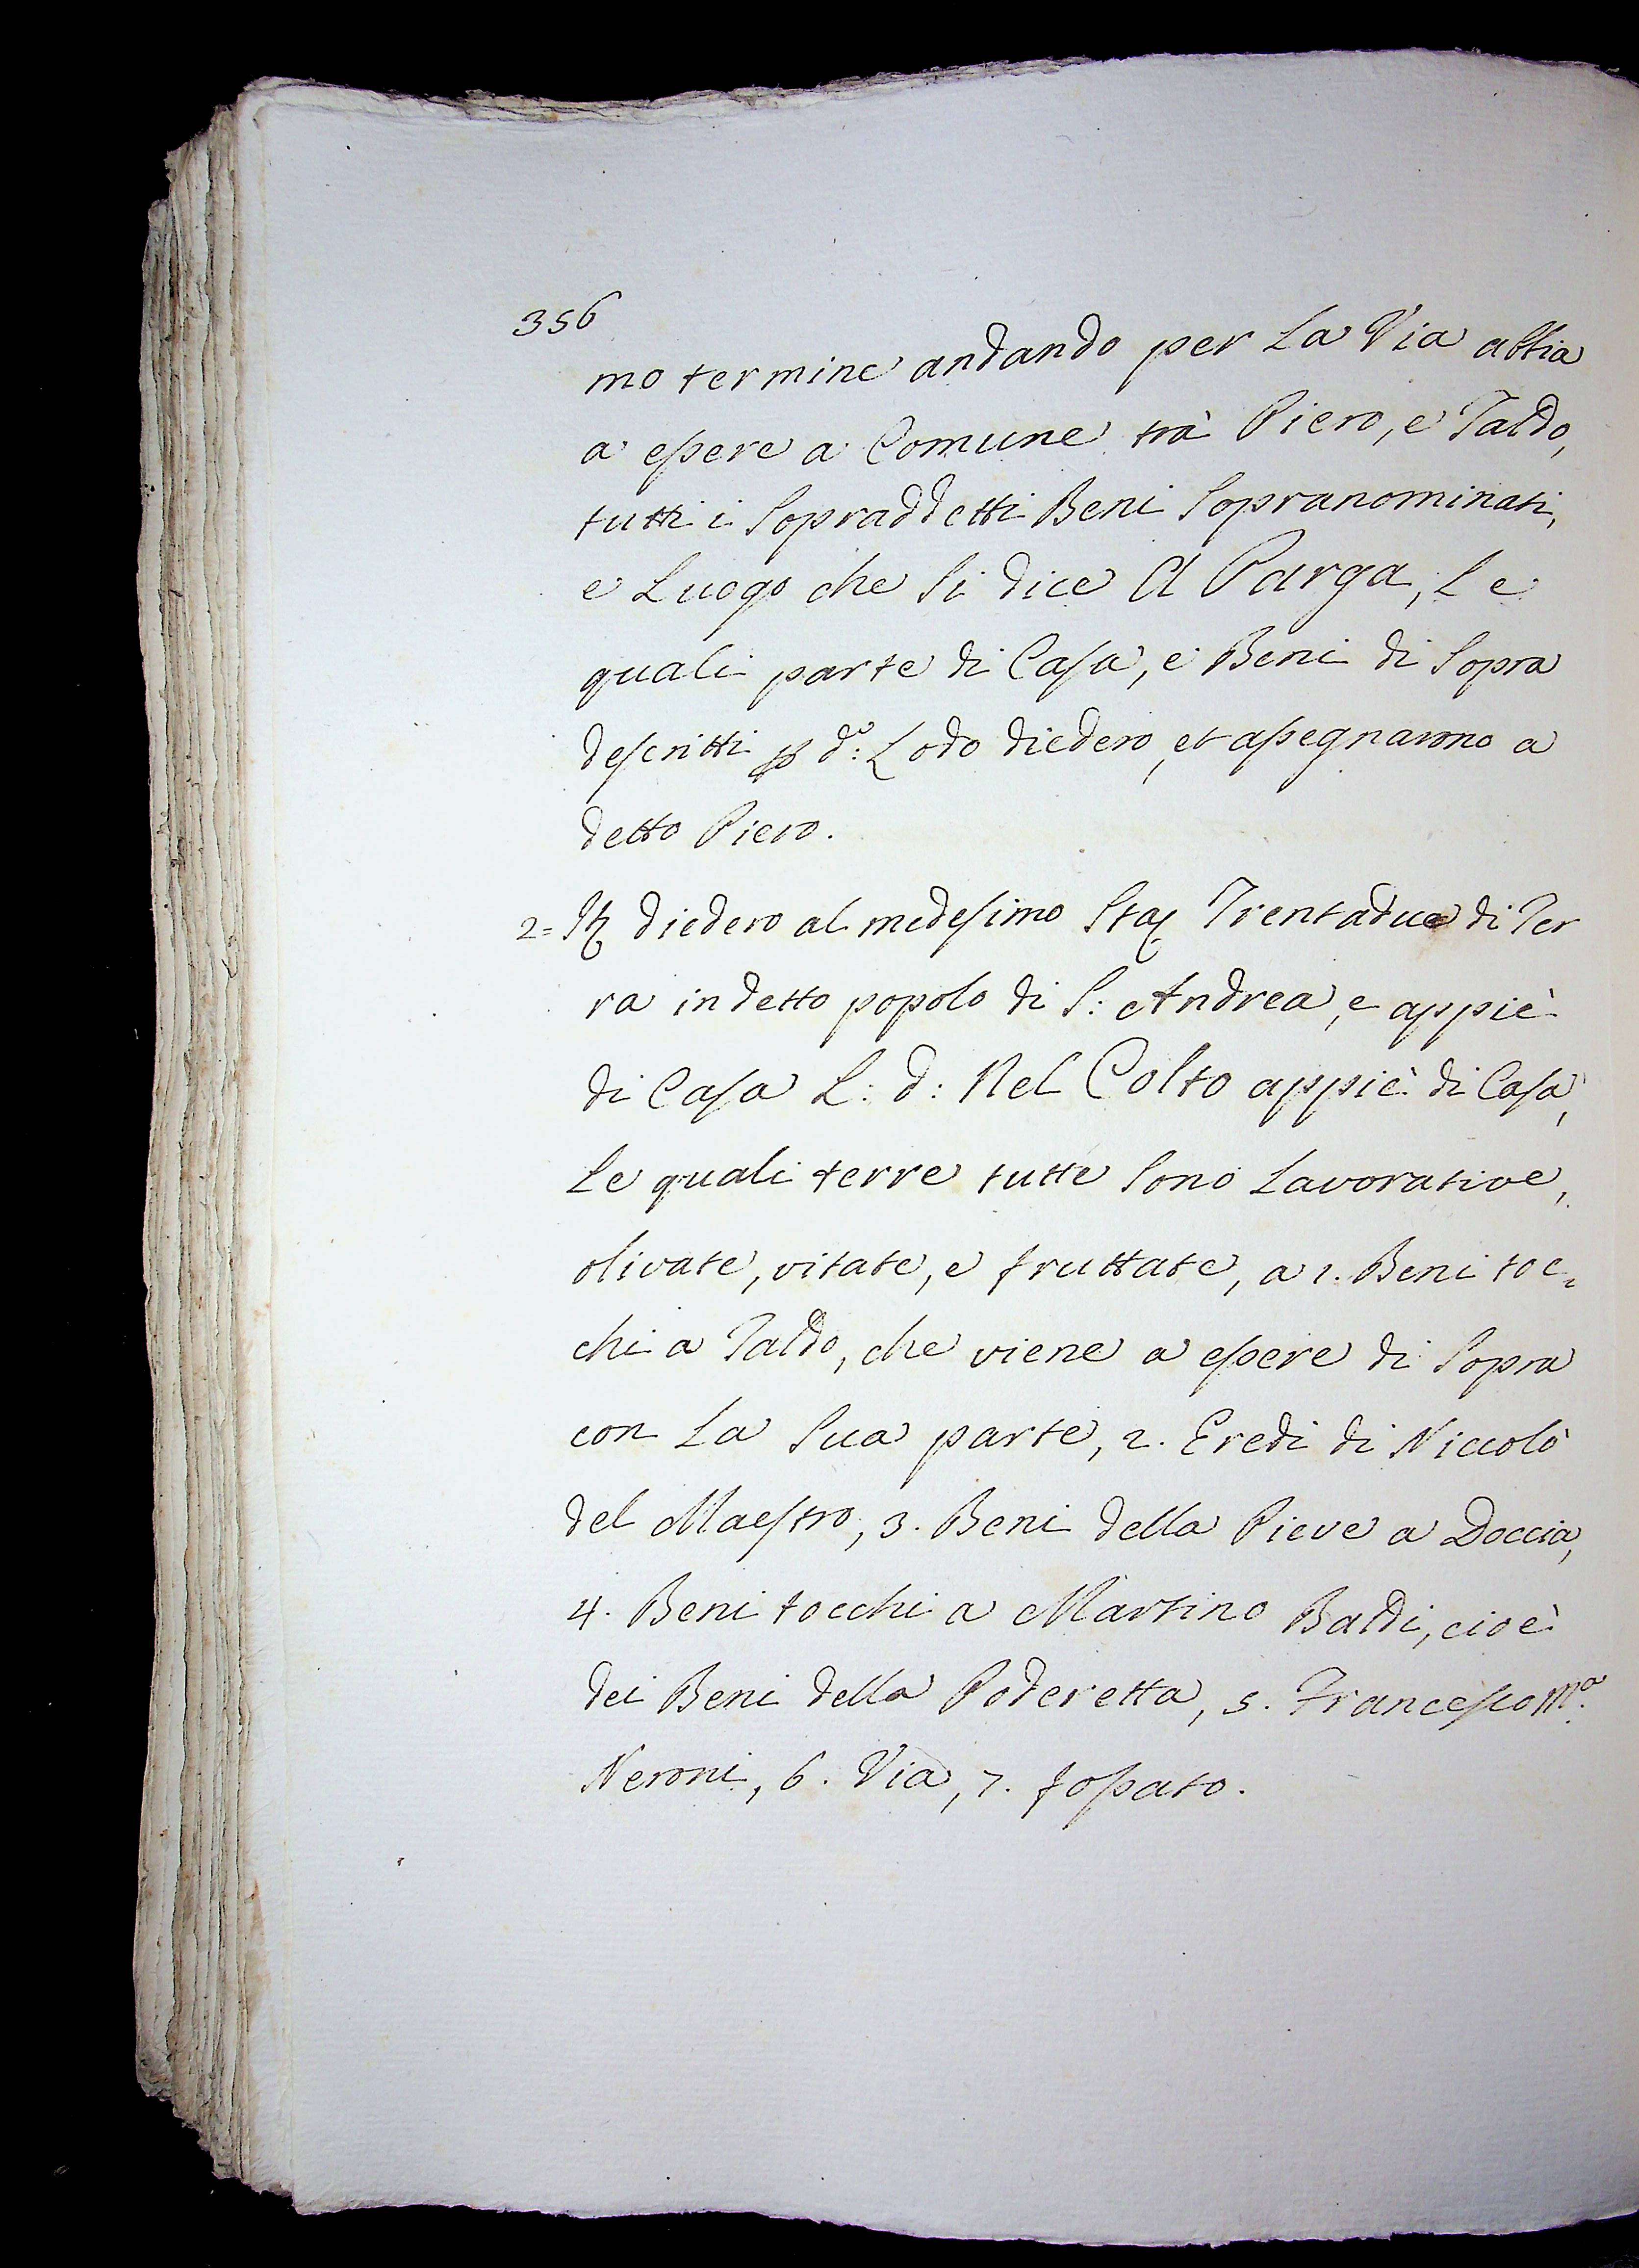 356
mo termine andando per La Via abbia
a essere a Comune trà Piero, e Taldo,
tutti i Sopraddetti Beni Sopranominati,
e Luogo che Si dice A Parga, Le
quali parte di Casa, e Beni di Sopra
descritti p d.º: Lodo diedero, et assegnarono a
detto Piero.
2= It diedero al medesimo Sta Trentadue di Ter
ra in detto popolo di S: Andrea, e appiè
di Casa L: d: Nel Colto appiè di Casa,
Le quali terre tutte Sono Lavorative,
olivate, vitate, e fruttate, a 1. Beni toc=
chi a Taldo, che viene a essere di Sopra
con La Sua parte, 2. Eredi di Niccolò
del Maestro, 3. Beni della Pieve a Doccia,
4. Beni tocchi a Martino Baldi, cioè
dei Beni della Poderetta, 5. Francesco M.ª
Neroni, 6. Via, 7. fossato.